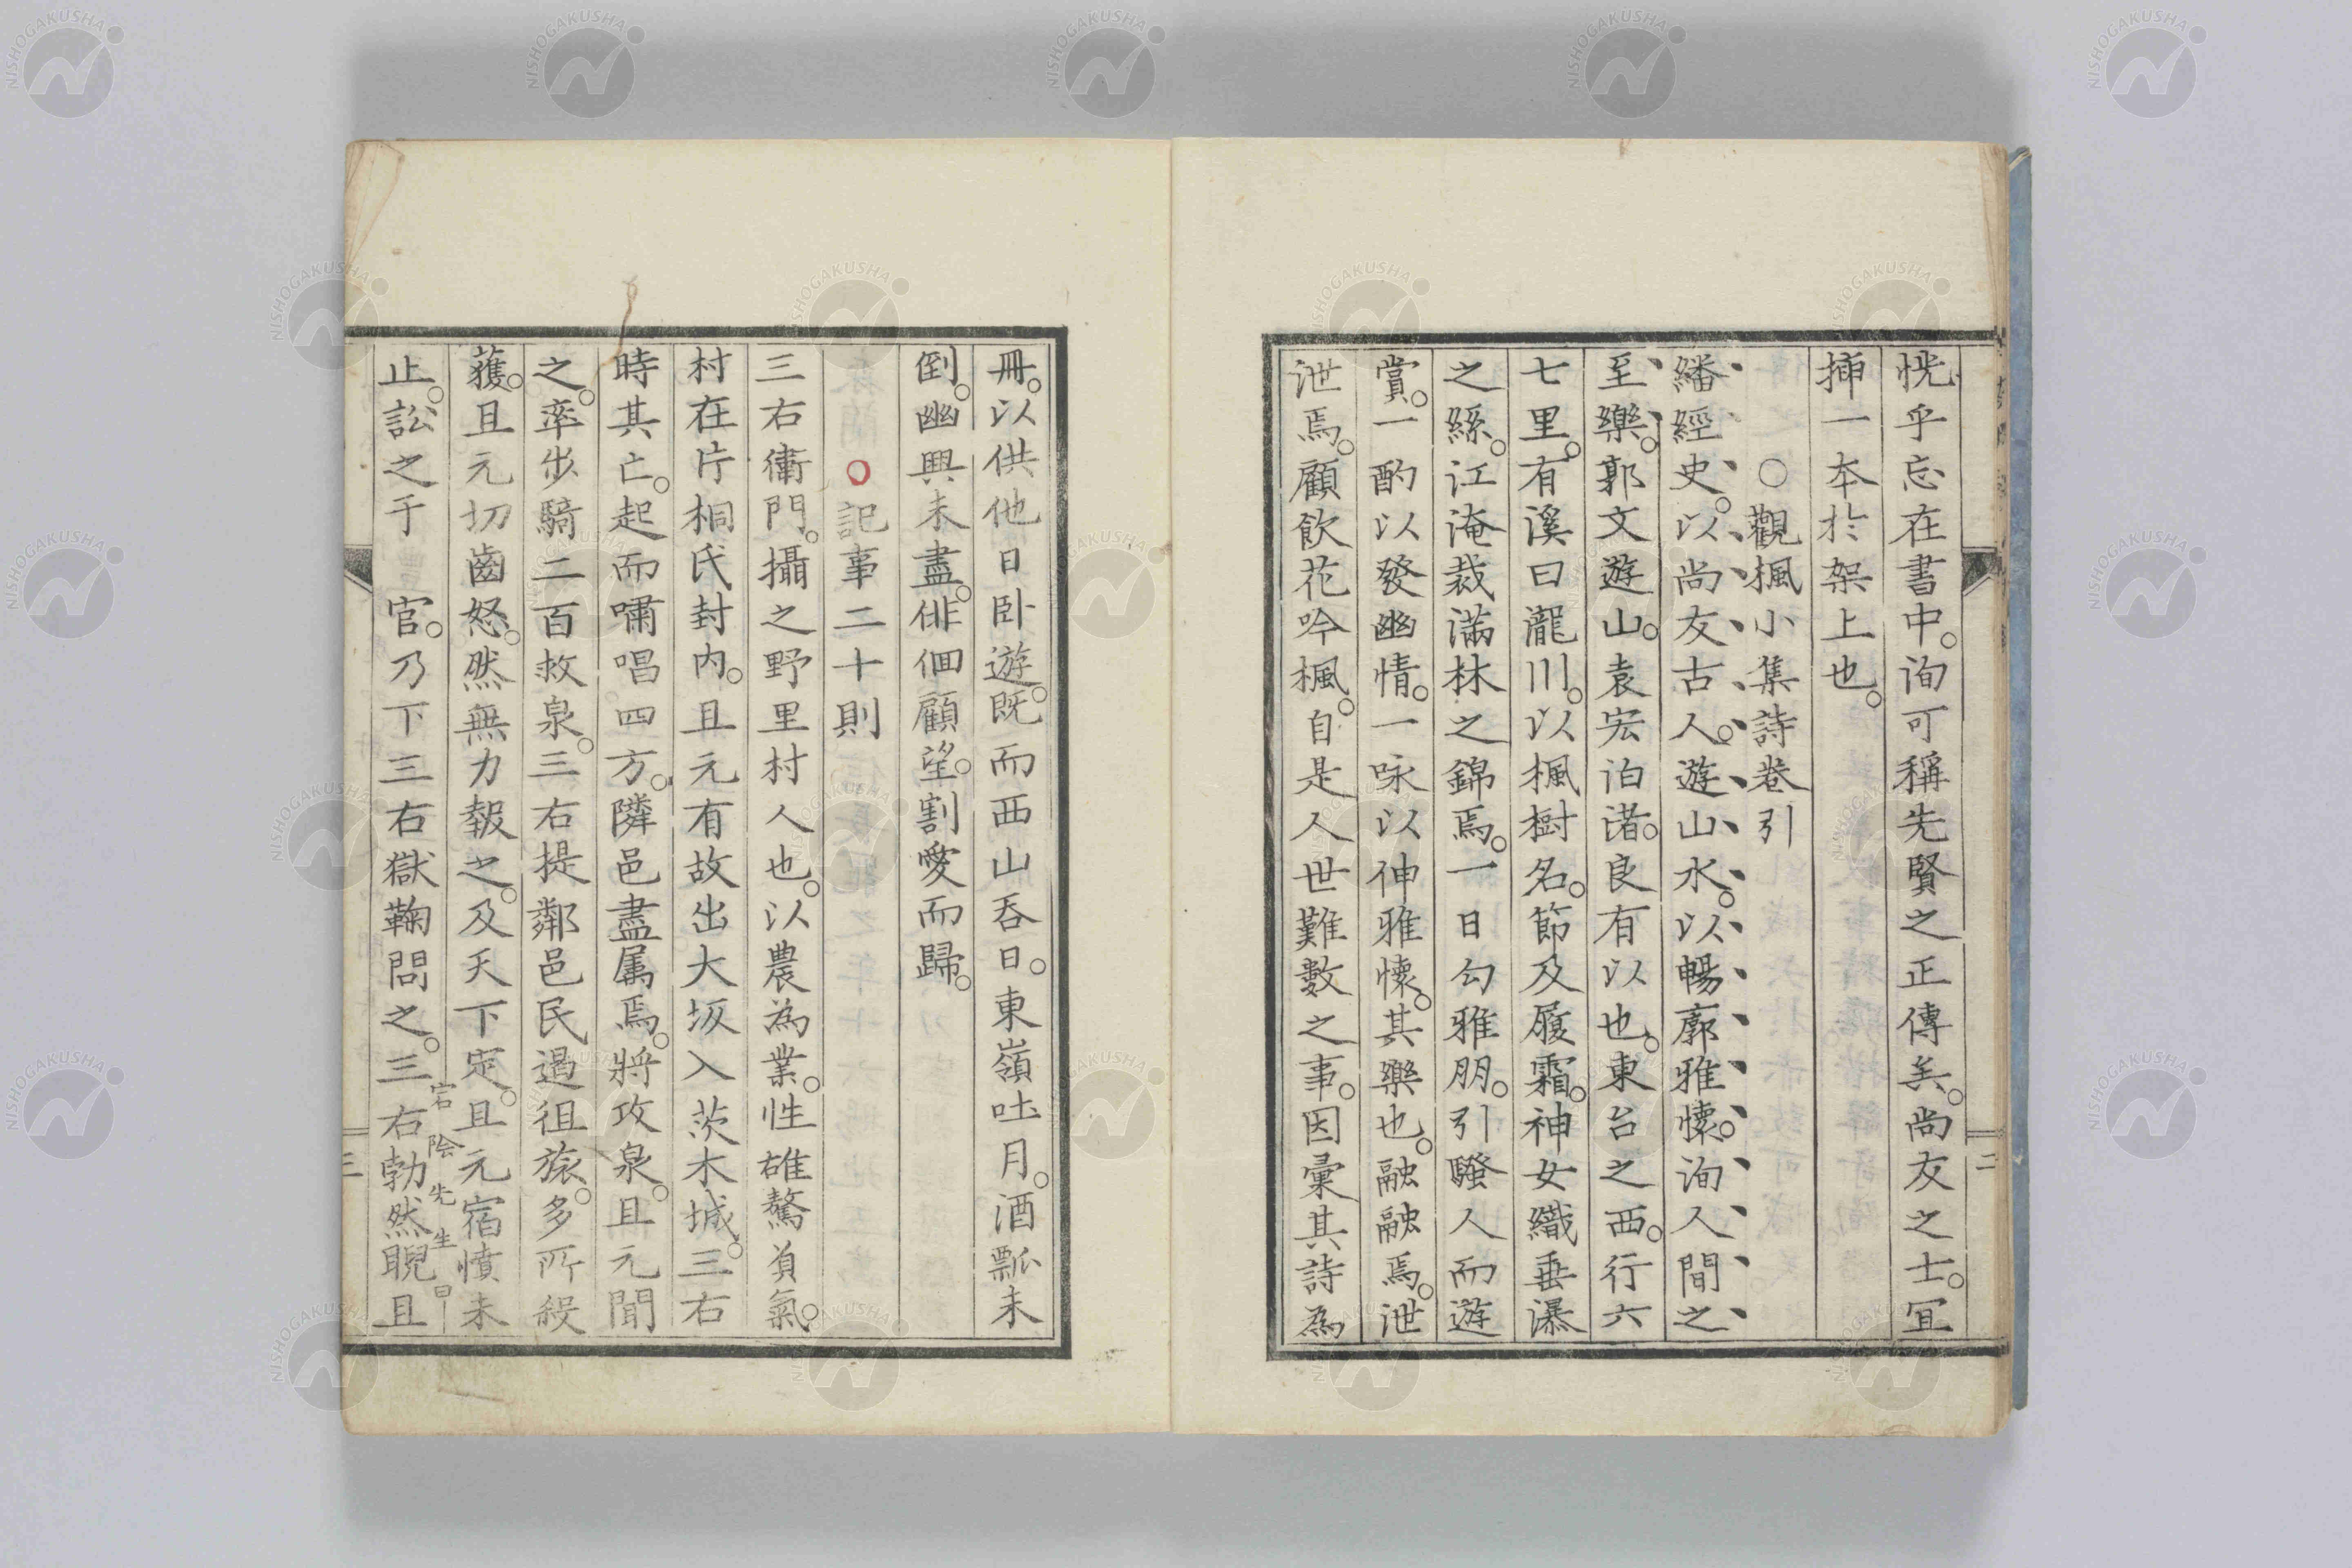 恍乎忘在書中。洵可稱先賢之正傳矣。尚友之士。宜
挿一本於架上也。
○觀楓小集詩卷引
繙經史。以尚友古人。遊山水。以暢廓雅懷。洵人間之
至樂。郭文遊山。袁宏泊渚。良有以也。東台之西。行六
七里。有溪曰瀧川。以楓樹名。節及履霜。神女織垂瀑
之絲。江淹裁滿林之錦焉。一日勾雅朋。引騷人而遊
賞。一酌以發幽情。一咏以伸雅懷。其樂也。融融焉。泄
泄焉。顧飲花吟楓。自是人世難數之事。因彙其詩為
二
冊。以供他日卧遊。既而西山吞日。東嶺吐月。酒瓢未
倒。幽興未盡。俳佪顧望。割愛而歸。
○記事二十則
三右衛門。攝之野里村人也。以農為業。性雄驁負氣。
村在片桐氏封内。且元有故出大坂入茨木城。三右
時其亡。起而嘯唱四方。隣邑盡属焉。將攻泉。且元聞
之。率步騎二百救泉。三右提鄰邑民遏徂旅。多所殺
獲。且元切齒怒。然無力報之。及天下定。且元宿憤未
宕陰先生曰
止。訟之于 官。乃下三右獄鞠問之。三右勃然睨且
三
NISHOGAKUSHA